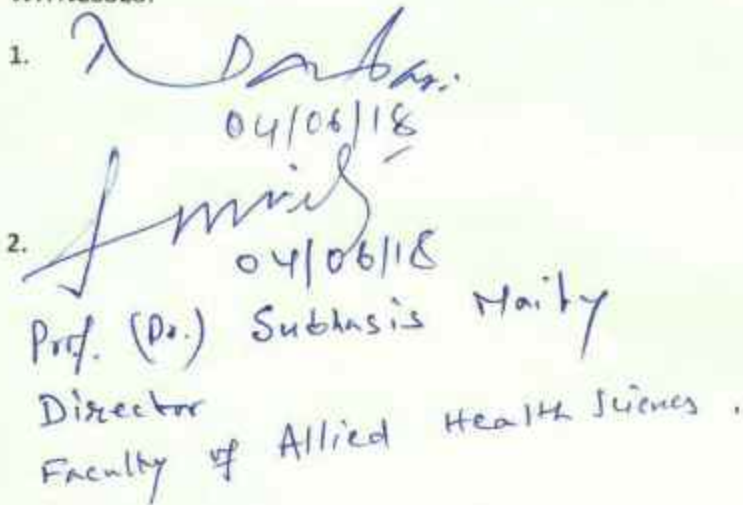 1.
04/06/18
2.
04/06/18
Prof. (Dr.) Subhasis Maity
Director
Faculty of Allied Health Sciences.